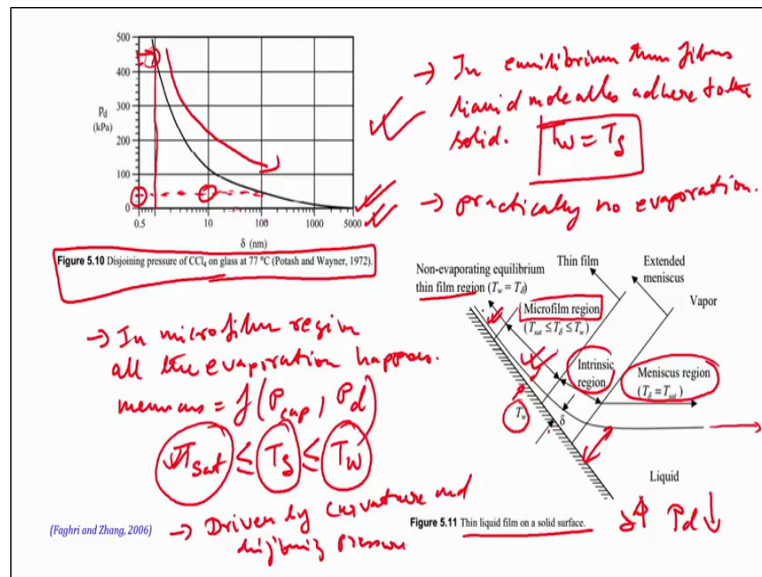 500
400
300
200
100
0
Pd
(kPa)
0.5
10
100
1000
5000
δ (nm)
Figure 5.10 Disjoining pressure of CCl4 on glass at 77 °C (Potash and Wayner, 1972).
→ In equilibrium thin films
liquid molecules adhere to the
solid. Tw = Tδ
→ practically no evaporation.
Non-evaporating equilibrium
thin film region (Tw = Tδ)
Thin film
Extended
meniscus
Vapor
Microfilm region
(Tsat ≤ Tδ ≤ Tw)
Intrinsic
region
Meniscus region
(Tδ = Tsat)
Tw
δ
Liquid
Figure 5.11 Thin liquid film on a solid surface.
δ↑ Pd↓
→ In microfilm region
all the evaporation happens.
meniscus = f(Pcap, Pd)
Tsat ≤ Tδ ≤ Tw
→ Driven by curvature and
disjoining pressure
(Faghri and Zhang, 2006)